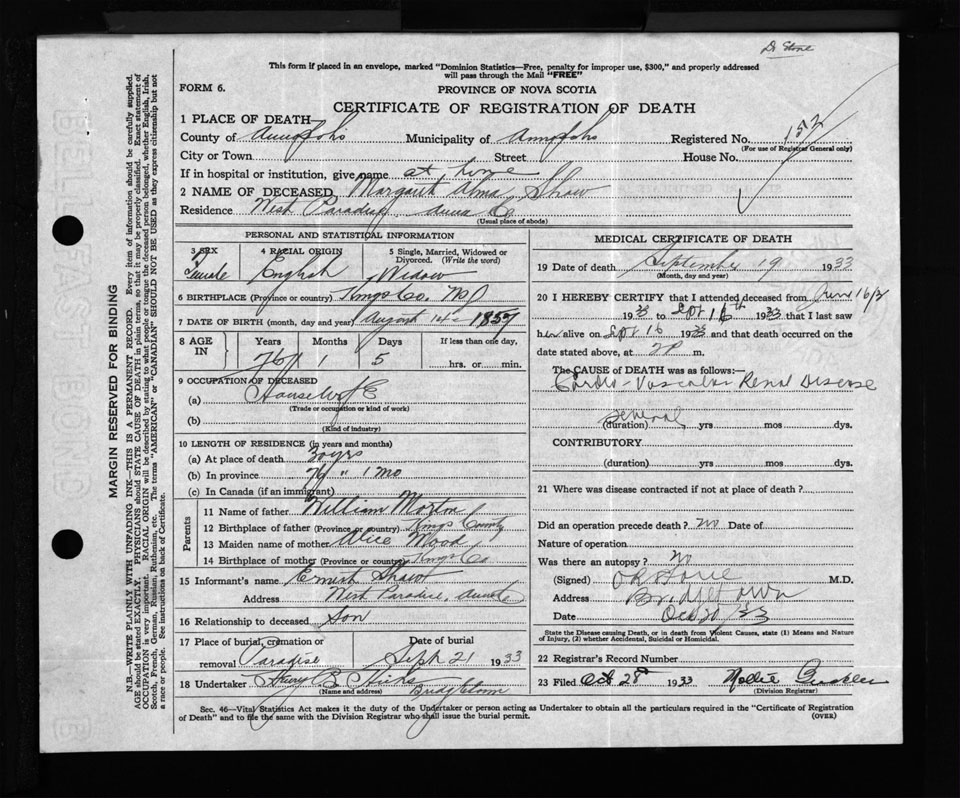 Dr Stone
This form if placed in an envelope, marked "Dominion Statistics—Free, penalty for improper use, $300," and properly addressed
will pass through the Mail "FREE"
FORM 6.
PROVINCE OF NOVA SCOTIA
CERTIFICATE OF REGISTRATION OF DEATH
1 PLACE OF DEATH
County of Annapolis Municipality of Annapolis Registered No. 152
(For use of Registrar General only)
City or Town Street House No.
If in hospital or institution, give name at home
2 NAME OF DECEASED Margaret Alma Shaw
Residence West Paradise Anna Co
(Usual place of abode)
MARGIN RESERVED FOR BINDING
N.B.—WRITE PLAINLY WITH UNFADING INK—THIS IS A PERMANENT RECORD. Every item of information should be carefully supplied.
AGE should be stated EXACTLY. PHYSICIANS should STATE CAUSE OF DEATH in plain terms, so that it may be properly classified. Exact statement of
OCCUPATION is very important. RACIAL ORIGIN will be described by stating to what people or tongue the deceased person belonged, whether English, Irish,
Scotch, French, German, Russian, Ruthenian, etc. The terms "AMERICAN" or "CANADIAN" SHOULD NOT BE USED as they express citizenship but not
a race or people. See instructions on back of Certificate.
PERSONAL AND STATISTICAL INFORMATION
3 SEX
Female
4 RACIAL ORIGIN
English
5 Single, Married, Widowed or
Divorced. (Write the word)
Widow
6 BIRTHPLACE (Province or country) Kings Co. NS
7 DATE OF BIRTH (month, day and year) August 14 1857
8 AGE
IN
Years
76
Months
1
Days
5
If less than one day,
hrs. or min.
9 OCCUPATION OF DECEASED
(a) Housewife
(Trade or occupation or kind of work)
(b)
(Kind of industry)
10 LENGTH OF RESIDENCE (in years and months)
(a) At place of death 30 yrs
(b) In province 76 " 1 mo
(c) In Canada (if an immigrant)
Parents
11 Name of father William Morton
12 Birthplace of father (Province or country) Kings County
13 Maiden name of mother Alice Wood
14 Birthplace of mother (Province or country) Kings Co
15 Informant's name Ernest Shaw
Address West Paradise, Anna Co
16 Relationship to deceased Son
17 Place of burial, cremation or
removal Paradise
Date of burial
Sept 21 1933
18 Undertaker Harry B Hicks
(Name and address) Bridgetown
MEDICAL CERTIFICATE OF DEATH
19 Date of death September 19 1933
(Month, day and year)
20 I HEREBY CERTIFY that I attended deceased from June 16/33
1933 to Sept 16th 1933 that I last saw
her alive on Sept 16 1933 and that death occurred on the
date stated above, at 2 P m.
The CAUSE of DEATH was as follows:
Cardio-Vascular Renal Disease
several
(duration) yrs mos dys.
CONTRIBUTORY
(duration) yrs mos dys.
21 Where was disease contracted if not at place of death?
Did an operation precede death? no Date of
Nature of operation
Was there an autopsy? No
(Signed) Stone M.D.
Address Bridgetown
Date Oct 20/33
State the Disease causing Death, or in death from Violent Causes, state (1) Means and Nature
of Injury, (2) whether Accidental, Suicidal or Homicidal.
22 Registrar's Record Number
23 Filed Oct 28 1933 Nellie
(Division Registrar)
Sec. 46—Vital Statistics Act makes it the duty of the Undertaker or person acting as Undertaker to obtain all the particulars required in the "Certificate of Registration
of Death" and to file the same with the Division Registrar who shall issue the burial permit.
(OVER)